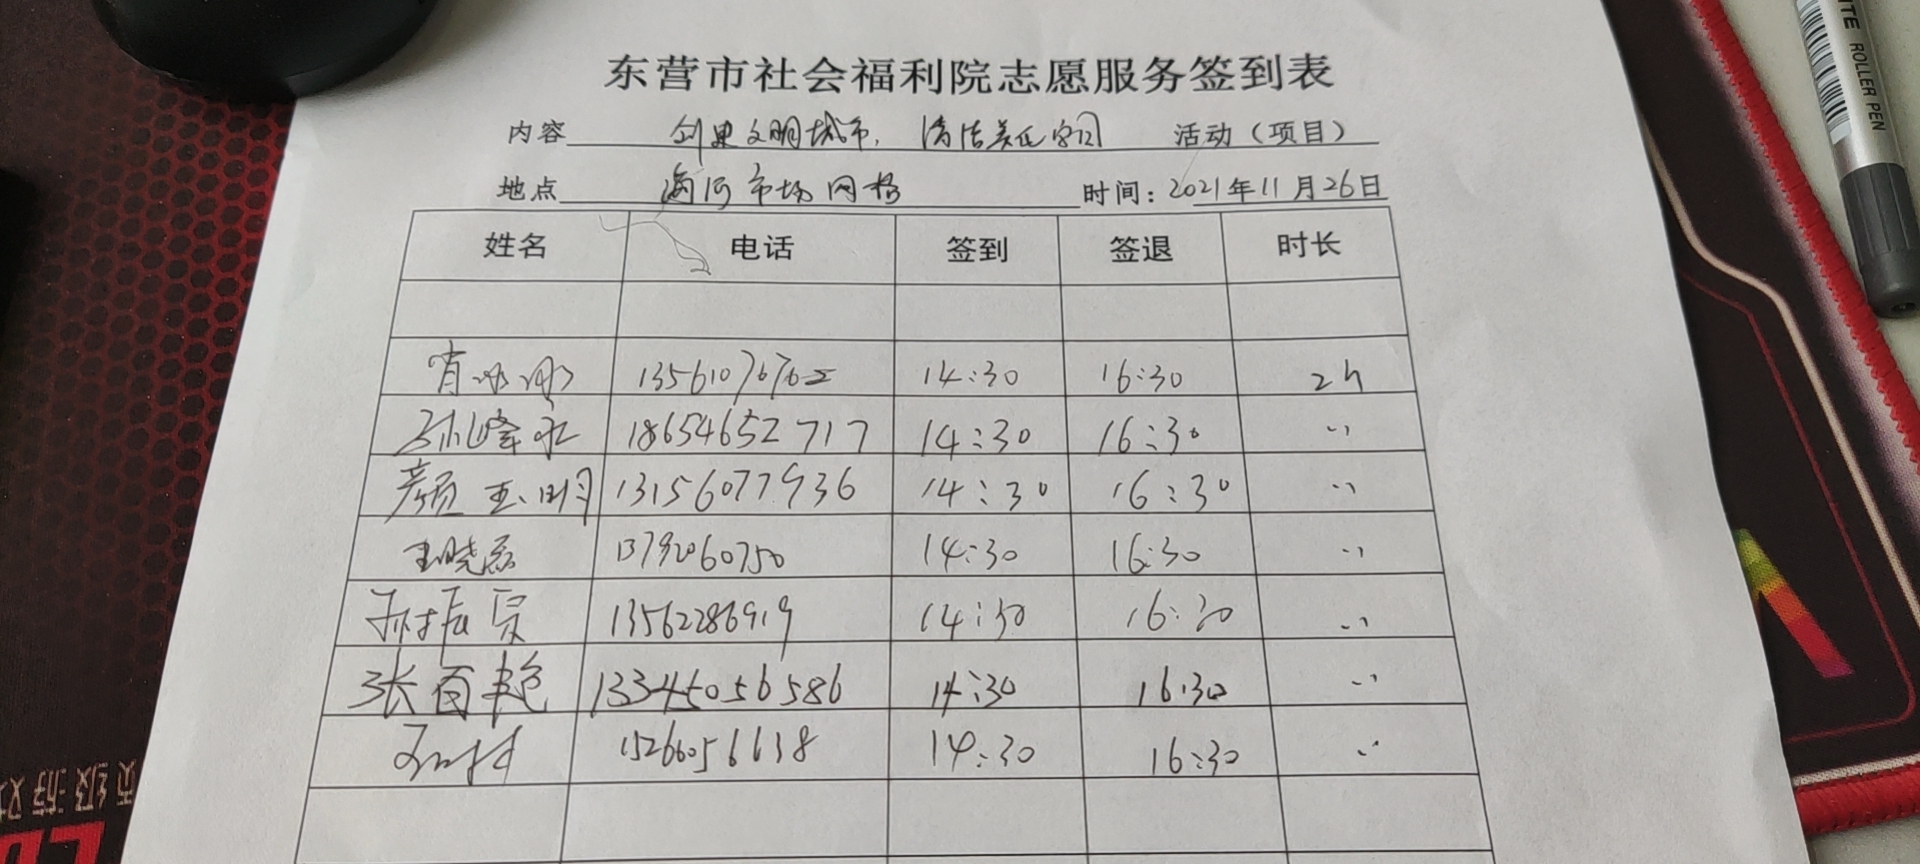 东营市社会福利院志愿服务签到表
内容 创建文明城市, 清洁美化家园 活动（项目）
地点 市场网格 时间：2021年11月26日
姓名 电话 签到 签退 时长
肖冰冰 14:30 16:30 2h
孙峰永 18654652717 14:30 16:30 ··
颜玉明 13156077936 14:30 16:30 ··
王晓磊 13792060750 14:30 16:30 ··
13562286919 14:30 16:30 ··
张百艳 13345056586 14:30 16:30 ··
15266056638 14:30 16:30 ··
ITE ROLLER PEN
顶级游戏